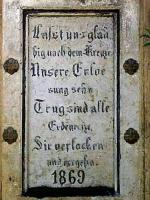 Lasst uns gläu
big nach dem Kreuze
Unsere Erloe
sung sehn
Trug sind alle
Erdenreize
Sie verlocken
und vergehn.
1869